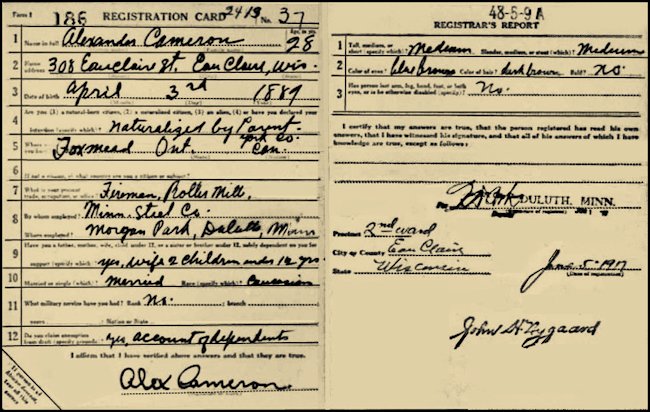 Form 1 186 REGISTRATION CARD 2413 No. 37
1 Name in full Alexander Cameron Age, in yrs. 28
2 Home address 308 Eau Claire St. Eau Claire, Wis.
3 Date of birth April 3rd 1889
4 Are you (1) a natural-born citizen, (2) a naturalized citizen, (3) an alien, (4) or have you declared your intention (specify which)? Naturalized by Parent
5 Where were you born? Foxmead Ont. Can.
6 If not a citizen, of what country are you a citizen or subject?
7 What is your present trade, occupation, or office? Fireman, Roller Mill,
8 By whom employed? Minn. Steel Co.
Where employed? Morgan Park, Duluth, Minn
9 Have you a father, mother, wife, child under 12, or a sister or brother under 12, solely dependent on you for
support (specify which)? yes, wife 2 children under 12 yrs
10 Married or single (which)? Married Race (specify which)? Caucasian
11 What military service have you had? Rank No. ; branch
years ; Nation or State
12 Do you claim exemption from draft (specify grounds)? yes, account of dependents
I affirm that I have verified above answers and that they are true.
Alex Cameron.
48-5-9 A
REGISTRAR'S REPORT
1 Tall, medium, or short (specify which)? Medium Slender, medium, or stout (which)? Medium
2 Color of eyes? Color of hair? dark brown Bald? No
3 Has person lost arm, leg, hand, foot, or both eyes, or is he otherwise disabled (specify)? No.
I certify that my answers are true, that the person registered has read his own
answers, that I have witnessed his signature, and that all of his answers of which I
have knowledge are true, except as follows:
DULUTH, MINN.
(Signature of registrar)
Precinct 2nd ward
City or County Eau Claire
State Wisconsin
June 5-1917
(Date of registration)
John H. Nygaard